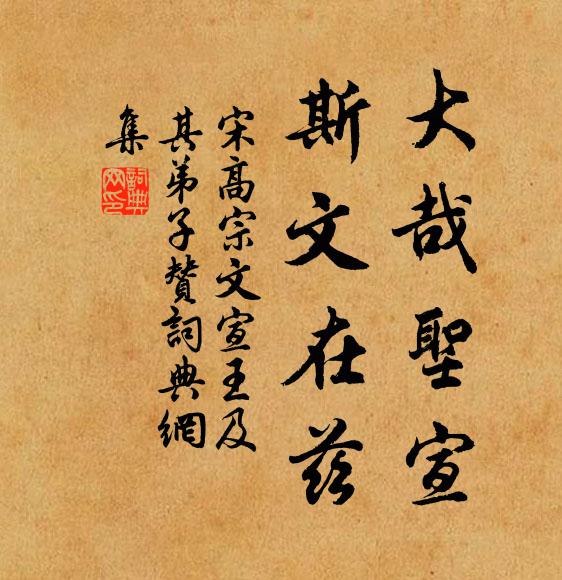 大哉聖宣
斯文在兹
宋高宗文宣王及
其弟子贊詞典網
集
詞典
网印